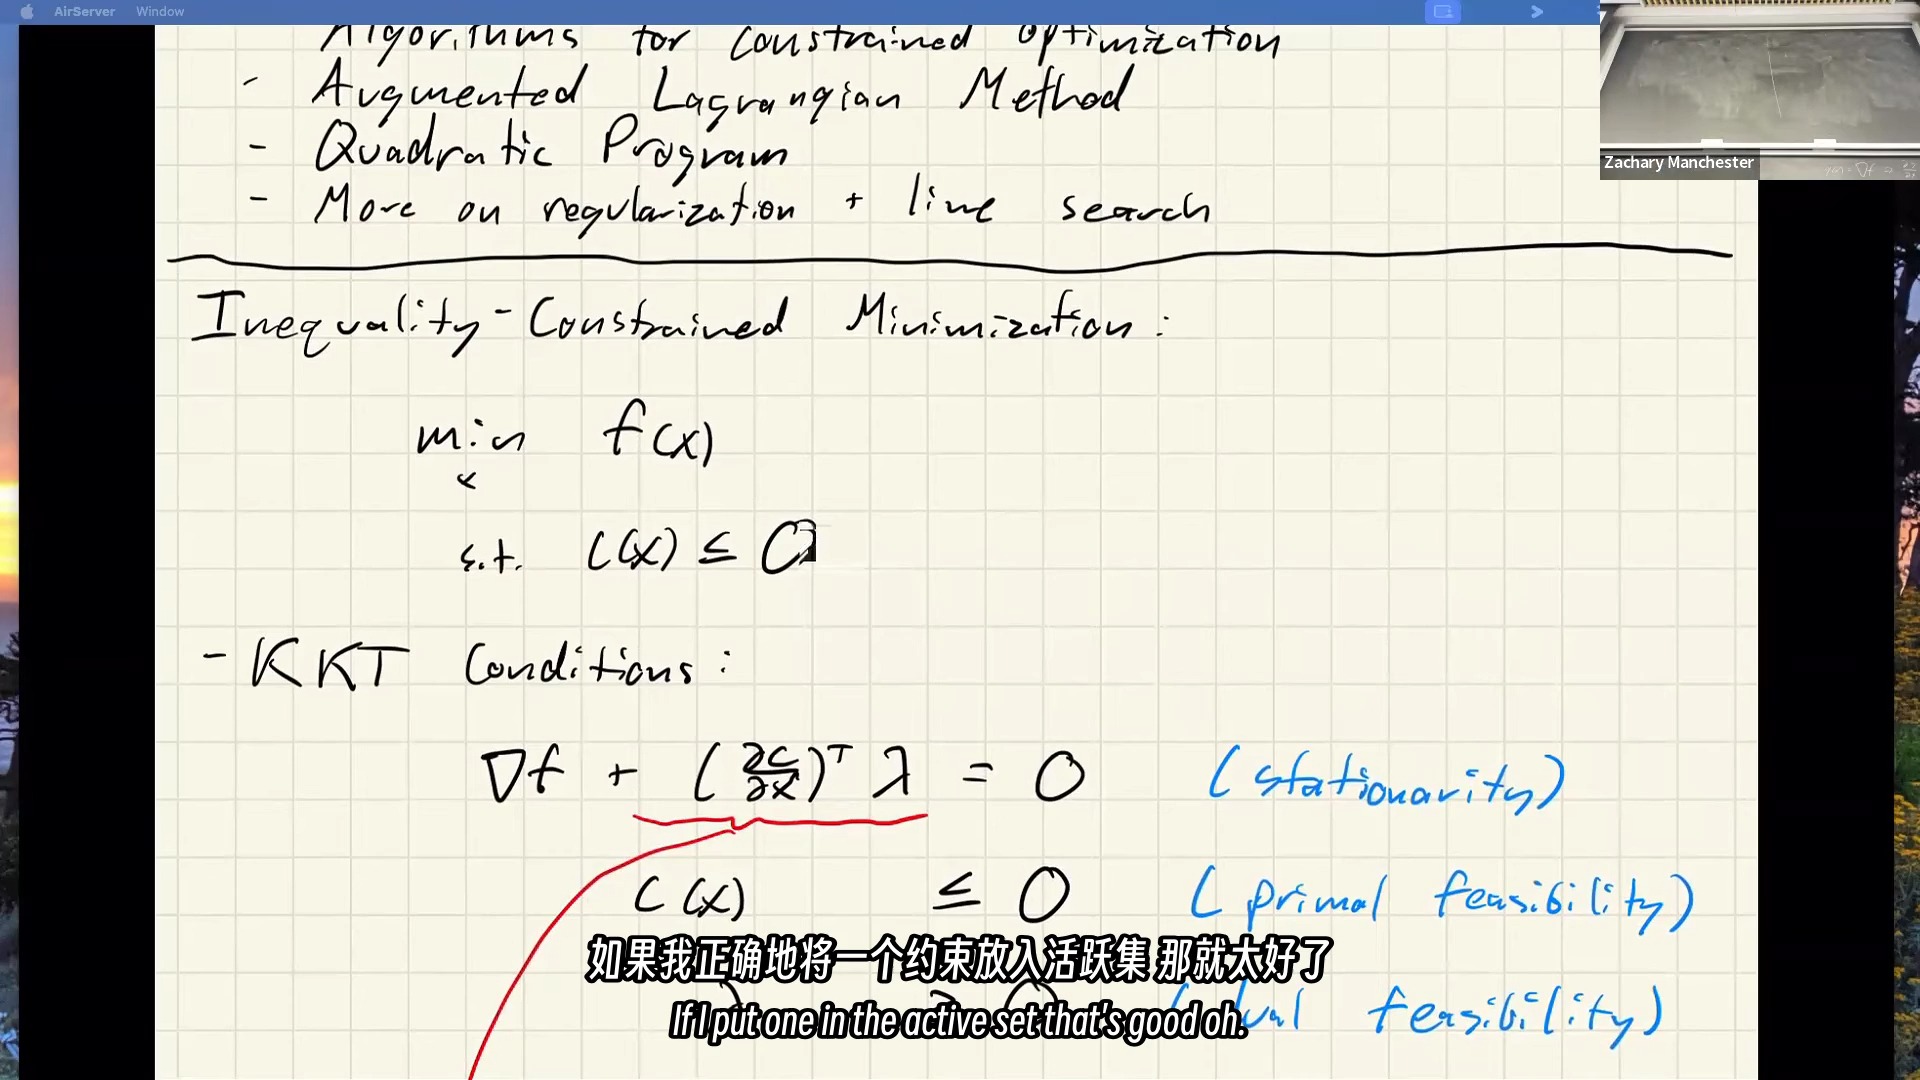 AirServer Window
Algorithms for constrained optimization
- Augmented Lagrangian Method
- Quadratic Program
- More on regularization + line search
Zachary Manchester
Inequality-Constrained Minimization:
min f(x)
x
s.t. C(x) ≤ 0
- KKT Conditions:
∇f + (∂C/∂x)ᵀ λ = 0 (stationarity)
C(x) ≤ 0 (primal feasibility)
如果我正确地将一个约束放入活跃集 那就太好了
feasibility)
If I put one in the active set that's good oh.